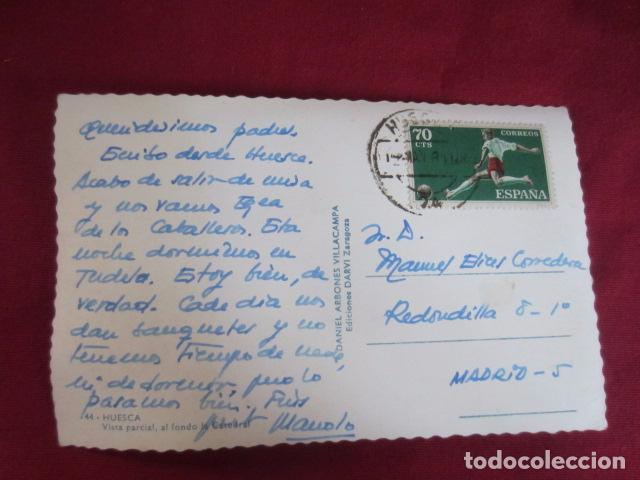 Queridísimos padres.
Escribo desde Huesca.
Acabo de salir de misa
y nos vamos Egea
de los Caballeros. Esta
noche dormimos en
Tudela. Estoy bien, de
verdad. Cada día nos
dan banquetes y no
tenemos tiempo de nada,
ni de dormir, pero lo
pasamos bien.
Manolo
44.- HUESCA
Vista parcial, al fondo la Catedral
DANIEL ARBONES VILLACAMPA
Ediciones DARVI Zaragoza
HUESCA
70
CTS
CORREOS
ESPAÑA
Sr. D.
Manuel Elices Corredera
Redondilla 8-1º
MADRID-5
todocoleccion.net